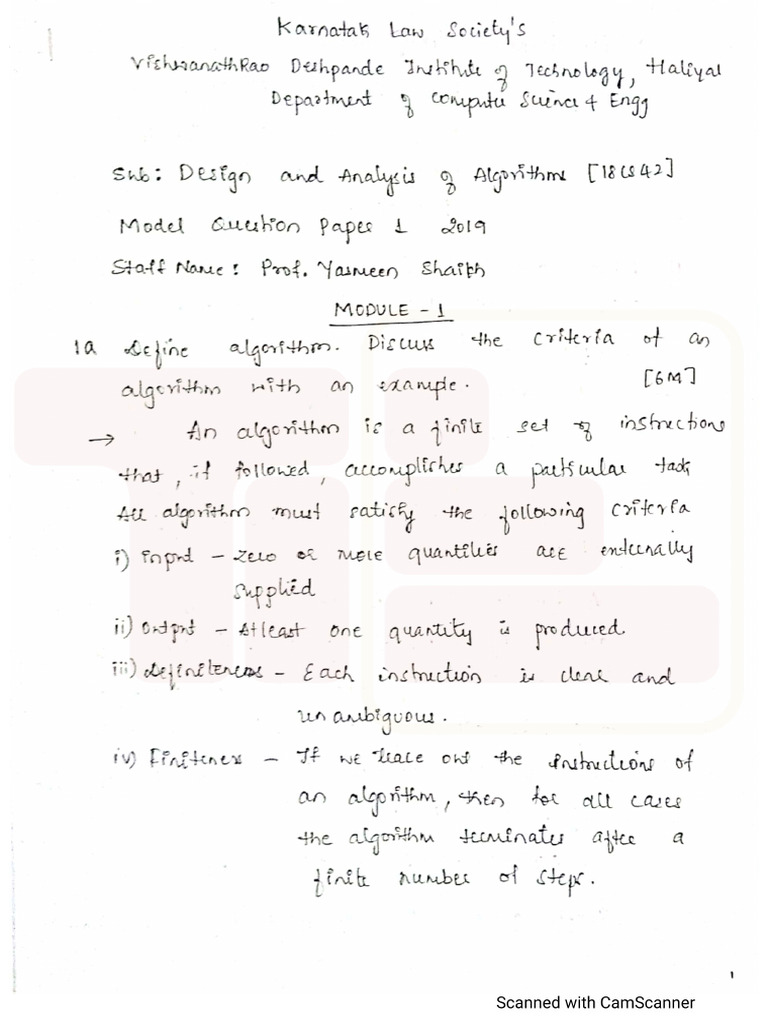 Karnatak Law Society's
VishwanathRao Deshpande Institute of Technology, Haliyal
Department of Computer Science & Engg
Sub: Design and Analysis of Algorithms [18CS42]
Model Question Paper 1 2019
Staff Name: Prof. Yasmeen Shaikh
MODULE - 1
1a Define algorithm. Discuss the criteria of an
algorithm with an example. [6M]
→ An algorithm is a finite set of instructions
that, if followed, accomplishes a particular task
All algorithm must satisfy the following criteria
i) input - zero or more quantities are externally
supplied
ii) Output - Atleast one quantity is produced.
iii) Definiteness - Each instruction is clear and
unambiguous.
iv) Finiteness - If we trace out the instructions of
an algorithm, then for all cases
the algorithm terminates after a
finite number of steps.
1
Scanned with CamScanner